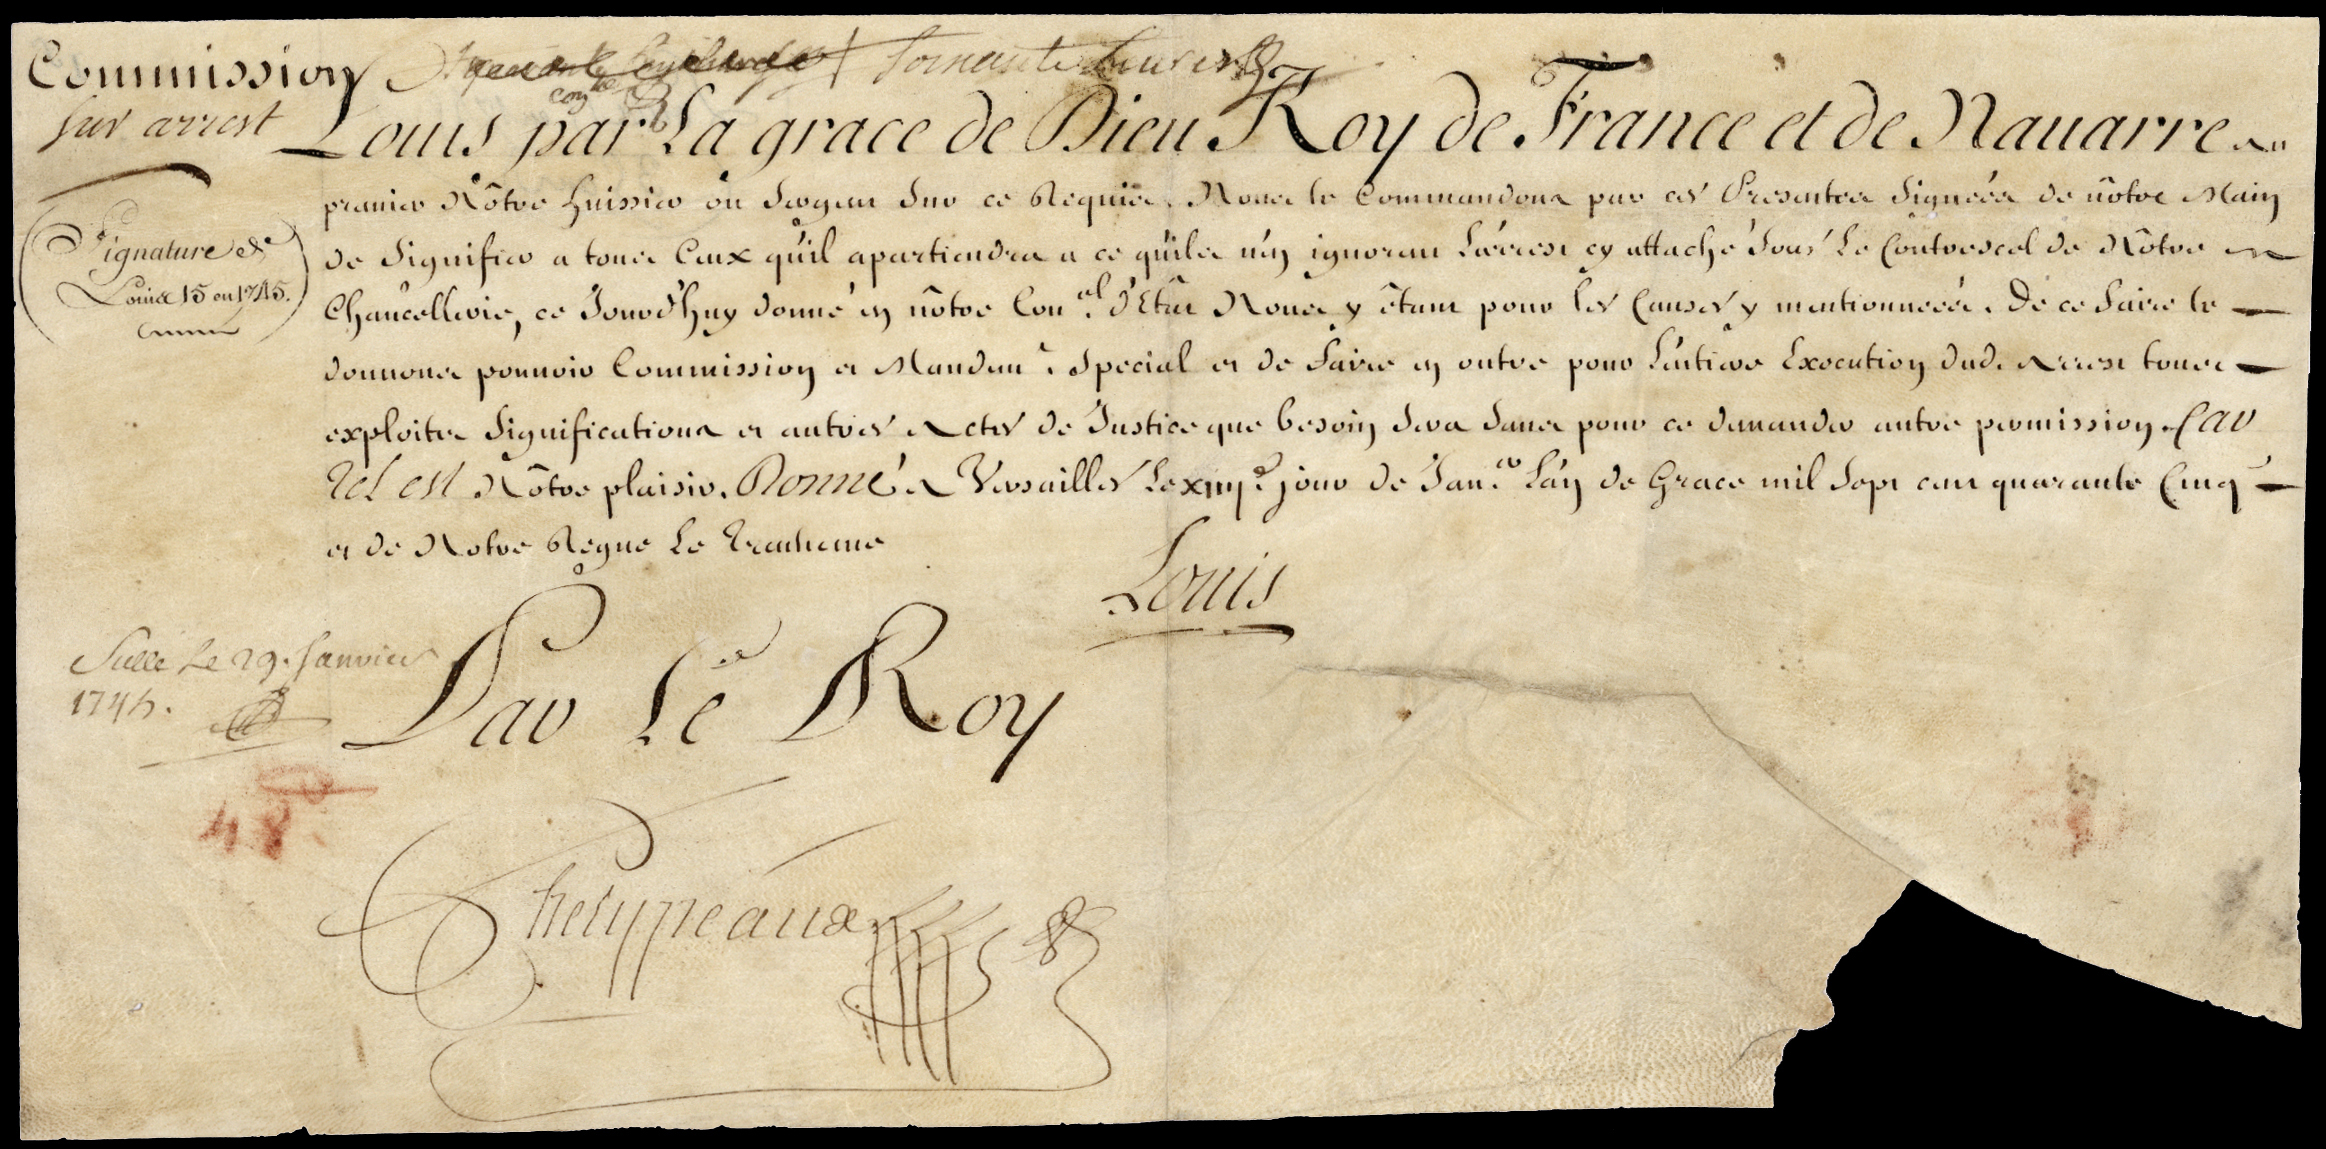 Commission
sur arrest
Soixante Livres
Louis par La grace de Dieu Roy de France et de Nauarre au
premier Nôtre huissier ou Sergent sur ce Requis. Nous te Commandons par ces Presentes Signées de nôtre Main
de Signifier a tous Ceux qu'il apartiendra a ce qu'ils n'en ignorent L'arrest cy attaché sous Le Contrescel de Nôtre
Chancellerie, ce Jourd'huy donné en nôtre Con.el d'Etat Nous y êtant pour les Causes y mentionnées. De ce faire te
donnons pouuoir Commission et Mandem.t Special et de faire en outre pour L'entiere Execution dud. Arrest tous
exploits Significations et autres Actes de Justice que besoin sera sans pour ce demander autre permission. Car
Tel est Nôtre plaisir. Donné A Versailles Le xiiij.e jour de Jan.er L'an de Grace mil Sept cent quarante Cinq
et de Notre Regne Le Trentieme
Louis
Signature de
Louis 15 en 1745.
Par Le Roy
Scellé Le 29. Janvier
1745.
48
Phelypeaux